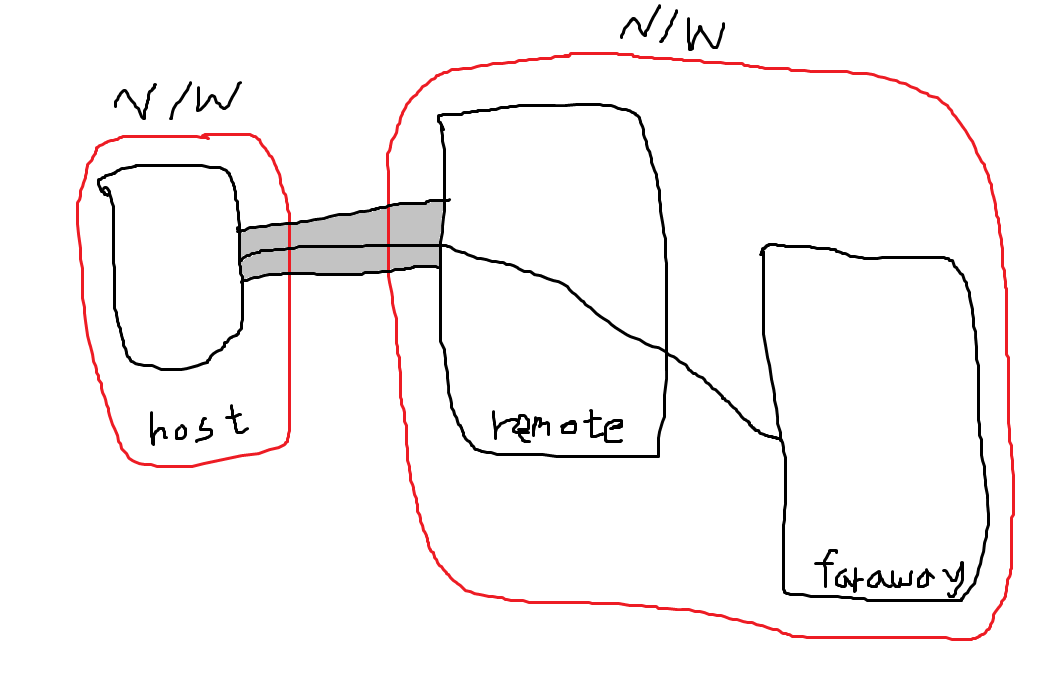 N/W
N/W
host
remote
faraway